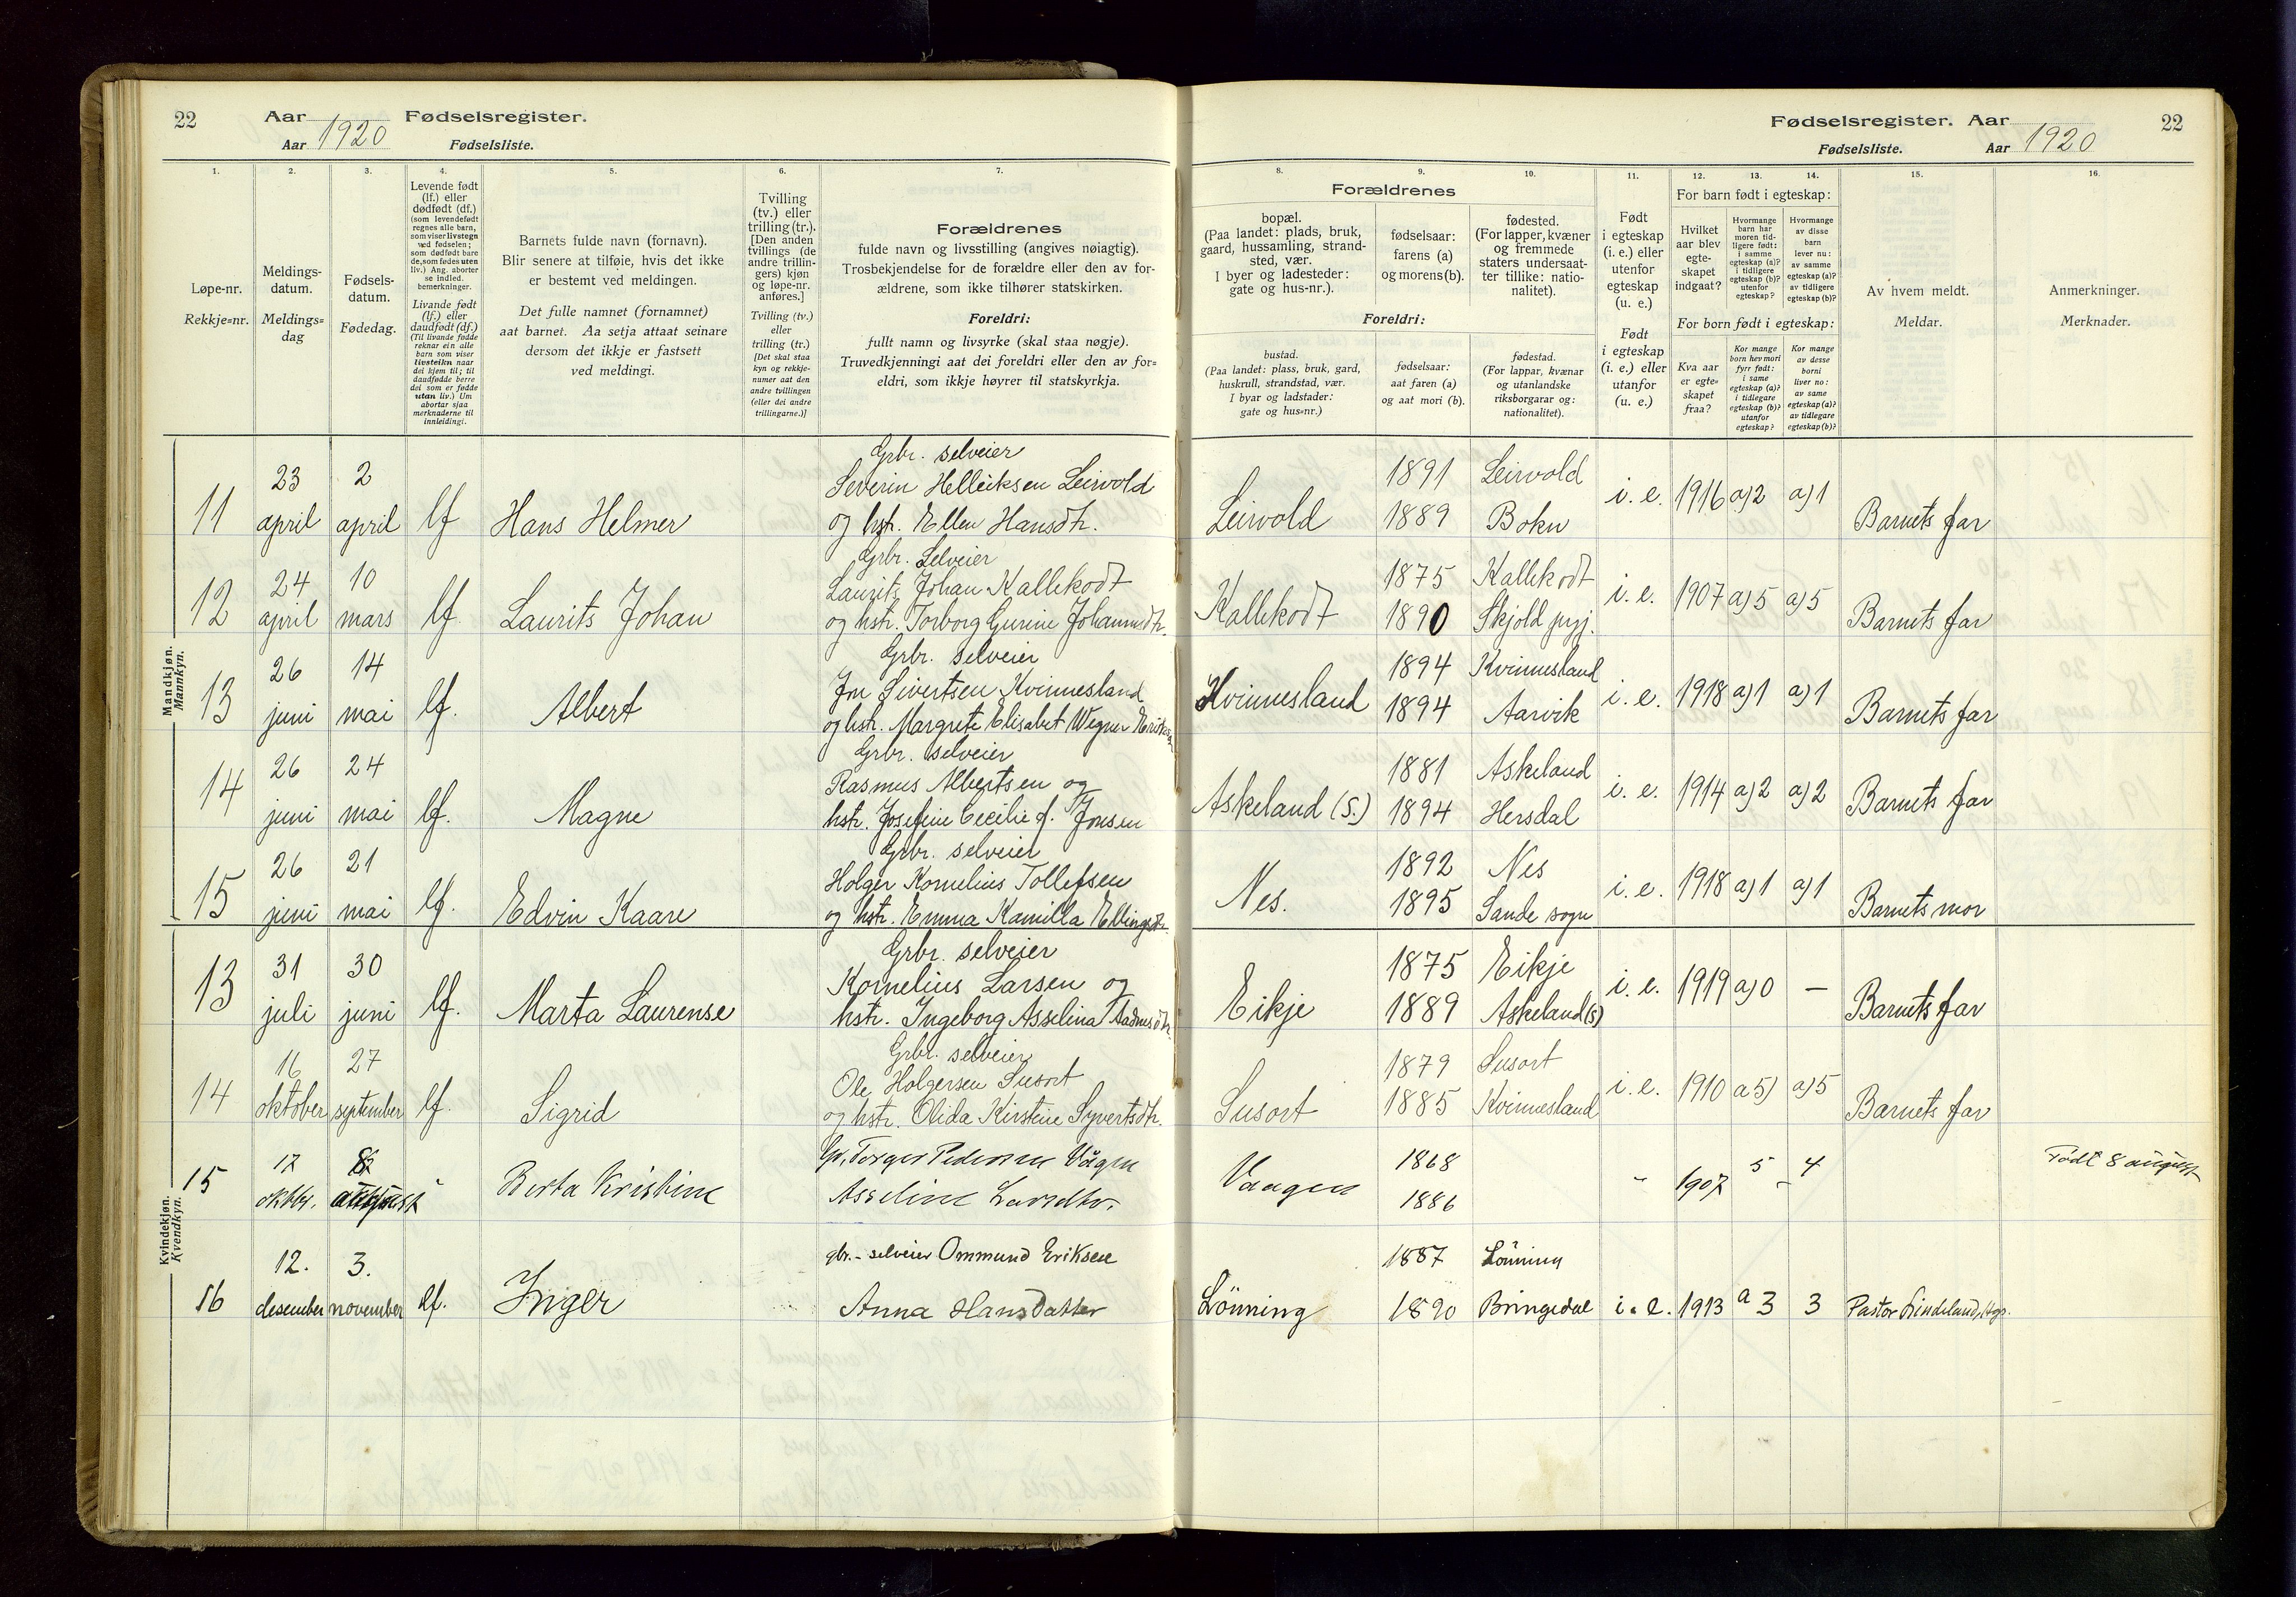 22 Aar 1920 Fødselsregister.
Aar Fødselsliste.
1. 2. 3. 4. 5. 6. 7.
Løpe-nr.
Rekkje=nr.
Meldings-
datum.
Meldings=
dag
Fødsels-
datum.
Fødedag.
Levende født
(lf.) eller
dødfødt (df.)
(som levendefødt
regnes alle barn,
som viser livstegn
ved fødselen;
som dødfødt bare
de, som fødes uten
liv.) Ang. aborter
se indled.
bemerkninger.
Livande født
(lf.) eller
daudfødt (df.)
(Til livande fødde
reknar ein alle
barn som viser
livsteikn naar
dei kjem til; til
daudfødde berre
dei som er fødde
utan liv.) Um
abortar sjaa
merknaderne til
innleidingi.
Barnets fulde navn (fornavn).
Blir senere at tilføie, hvis det ikke
er bestemt ved meldingen.
Det fulle namnet (fornamnet)
aat barnet. Aa setja attaat seinare
dersom det ikkje er fastsett
ved meldingi.
Tvilling
(tv.) eller
trilling (tr.).
[Den anden
tvillings (de
andre trillin-
gers) kjøn
og løpe-nr.
anføres.]
Tvilling (tv.)
eller
trilling (tr.)
[Det skal staa
kyn og rekkje-
numer aat den
andre tvillingen
(eller dei andre
trillingarne.)]
Forældrenes
fulde navn og livsstilling (angives nøiagtig).
Trosbekjendelse for de forældre eller den av for-
ældrene, som ikke tilhører statskirken.
Foreldri:
fullt namn og livsyrke (skal staa nøgje).
Truvedkjenningi aat dei foreldri eller den av for=
eldri, som ikkje høyrer til statskyrkja.
Mandkjøn.
Mannkyn.
Grbr. selveier
23 2 Severin Helleiksen Leirvold
11 april april lf Hans Helmer og hstr. Ellen Hansdtr.
Grbr. Selveier
24 10 Laurits Johan Kallekodt
12 april mars lf. Laurits Johan og hstr. Torborg Gurine Johannesdtr.
Grbr. selveier
26 14 Jon Sivertsen Kvinnesland
13 juni mai lf. Albert og hstr. Margrete Elisabet Wegner
Grbr. selveier
26 24 Rasmus Albertsen og
14 juni mai lf. Magne hstr. Josefine Cecilie f. Jonsen
Grbr. selveier
26 21 Holger Kornelius Tollefsen
15 juni mai lf. Edvin Kaare og hstr. Emma Kamilla Ellingsdtr.
Kvindekjøn.
Kvendkyn.
Grbr. selveier
31 30 Kornelius Larsen og
13 juli juni lf. Marta Laurense hstr. Ingeborg Asselina Aadnesdtr.
Grbr. selveier
16 27 Ole Holgersen Susort
14 oktober september lf. Sigrid og hstr. Olida Kirstine Syvertsdtr.
17 8 Torger Pedersen Vågen
15 oktbr. august " Berta Kristine Asseline Larsdtr.
12. 3. gbr. - selveier Ommund Eriksen
16 desember november lf. Inger Anna Hansdatter
Fødselsregister. Aar 1920 22
Fødselsliste. Aar
8. 9. 10. 11. 12. 13. 14. 15. 16.
Forældrenes
bopæl.
(Paa landet: plads, bruk,
gaard, hussamling, strand-
sted, vær.
I byer og ladesteder:
gate og hus-nr.).
fødselsaar:
farens (a)
og morens (b).
fødested.
(For lapper, kvæner
og fremmede
staters undersaat-
ter tillike: natio-
nalitet).
Foreldri:
bustad.
(Paa landet: plass, bruk, gard,
huskrull, strandstad, vær.
I byar og ladstader:
gate og hus=nr.)
fødselsaar:
aat faren (a)
og aat mori (b).
fødestad.
(For lappar, kvænar
og utanlandske
riksborgarar og:
nationalitet).
Født
i egteskap
(i. e.) eller
utenfor
egteskap
(u. e.)
Født
i egteskap
(i. e.) eller
utanfor
(u. e.)
For barn født i egteskap:
Hvilket
aar blev
egte-
skapet
indgaat?
Hvormange
barn har
moren tid-
ligere født:
i samme
egteskap (a)?
i tidligere
egteskap (b)?
utenfor
egteskap?
Hvormange
av disse
barn
lever nu:
av samme
egteskap (a)?
av tidligere
egteskap (b)?
For born født i egteskap:
Kva aar
er egte=
skapet
fraa?
Kor mange
born hev mori
fyrr født:
i same
egteskap (a)?
i tidlegare
egteskap (b)?
utanfor
egteskap?
Kor mange
av desse
borni
liver no:
av same
egteskap (a)?
av tidlegare
egteskap (b)?
Av hvem meldt.
Meldar.
Anmerkninger.
Merknader.
1891 Leirvold
Leirvold 1889 Bokn i. e. 1916 a) 2 a) 1 Barnets far
1875 Kallekodt
Kallekodt 1890 Skjold prgj. i. e. 1907 a) 5 a) 5 Barnets far
1894 Kvinnesland
Kvinnesland 1894 Aarvik i. e. 1918 a) 1 a) 1 Barnets far
1881 Askeland
Askeland (S.) 1894 Hersdal i. e. 1914 a) 2 a) 2 Barnets far
1892 Nes
Nes. 1895 Sande sogn i. e. 1918 a) 1 a) 1 Barnets mor
1875 Eikje
Eikje 1889 Askeland (S) i. e. 1919 a) 0 — Barnets far
1879 Susort
Susort 1885 Kvinnesland i. e. 1910 a 5) a) 5 Barnets far
1868 Født 8 august
Vaagen 1886 " 1907 5 - 4
1887 Lönning
Lönning 1890 Bringedal i. e. 1913 a 3 3 Pastor Lindeland,